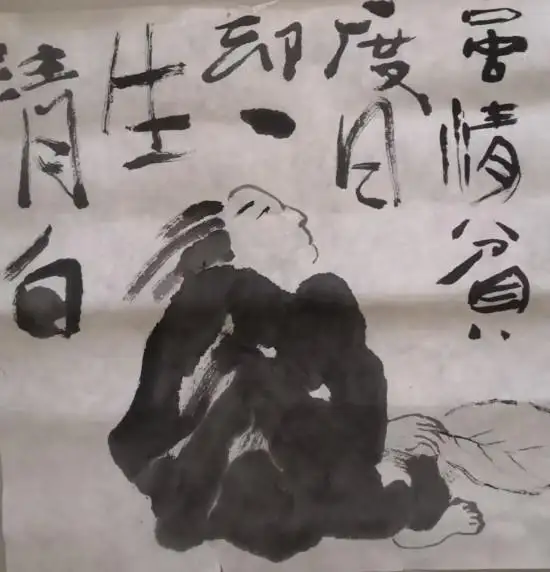 曾情貧
度日
却一
生
清白